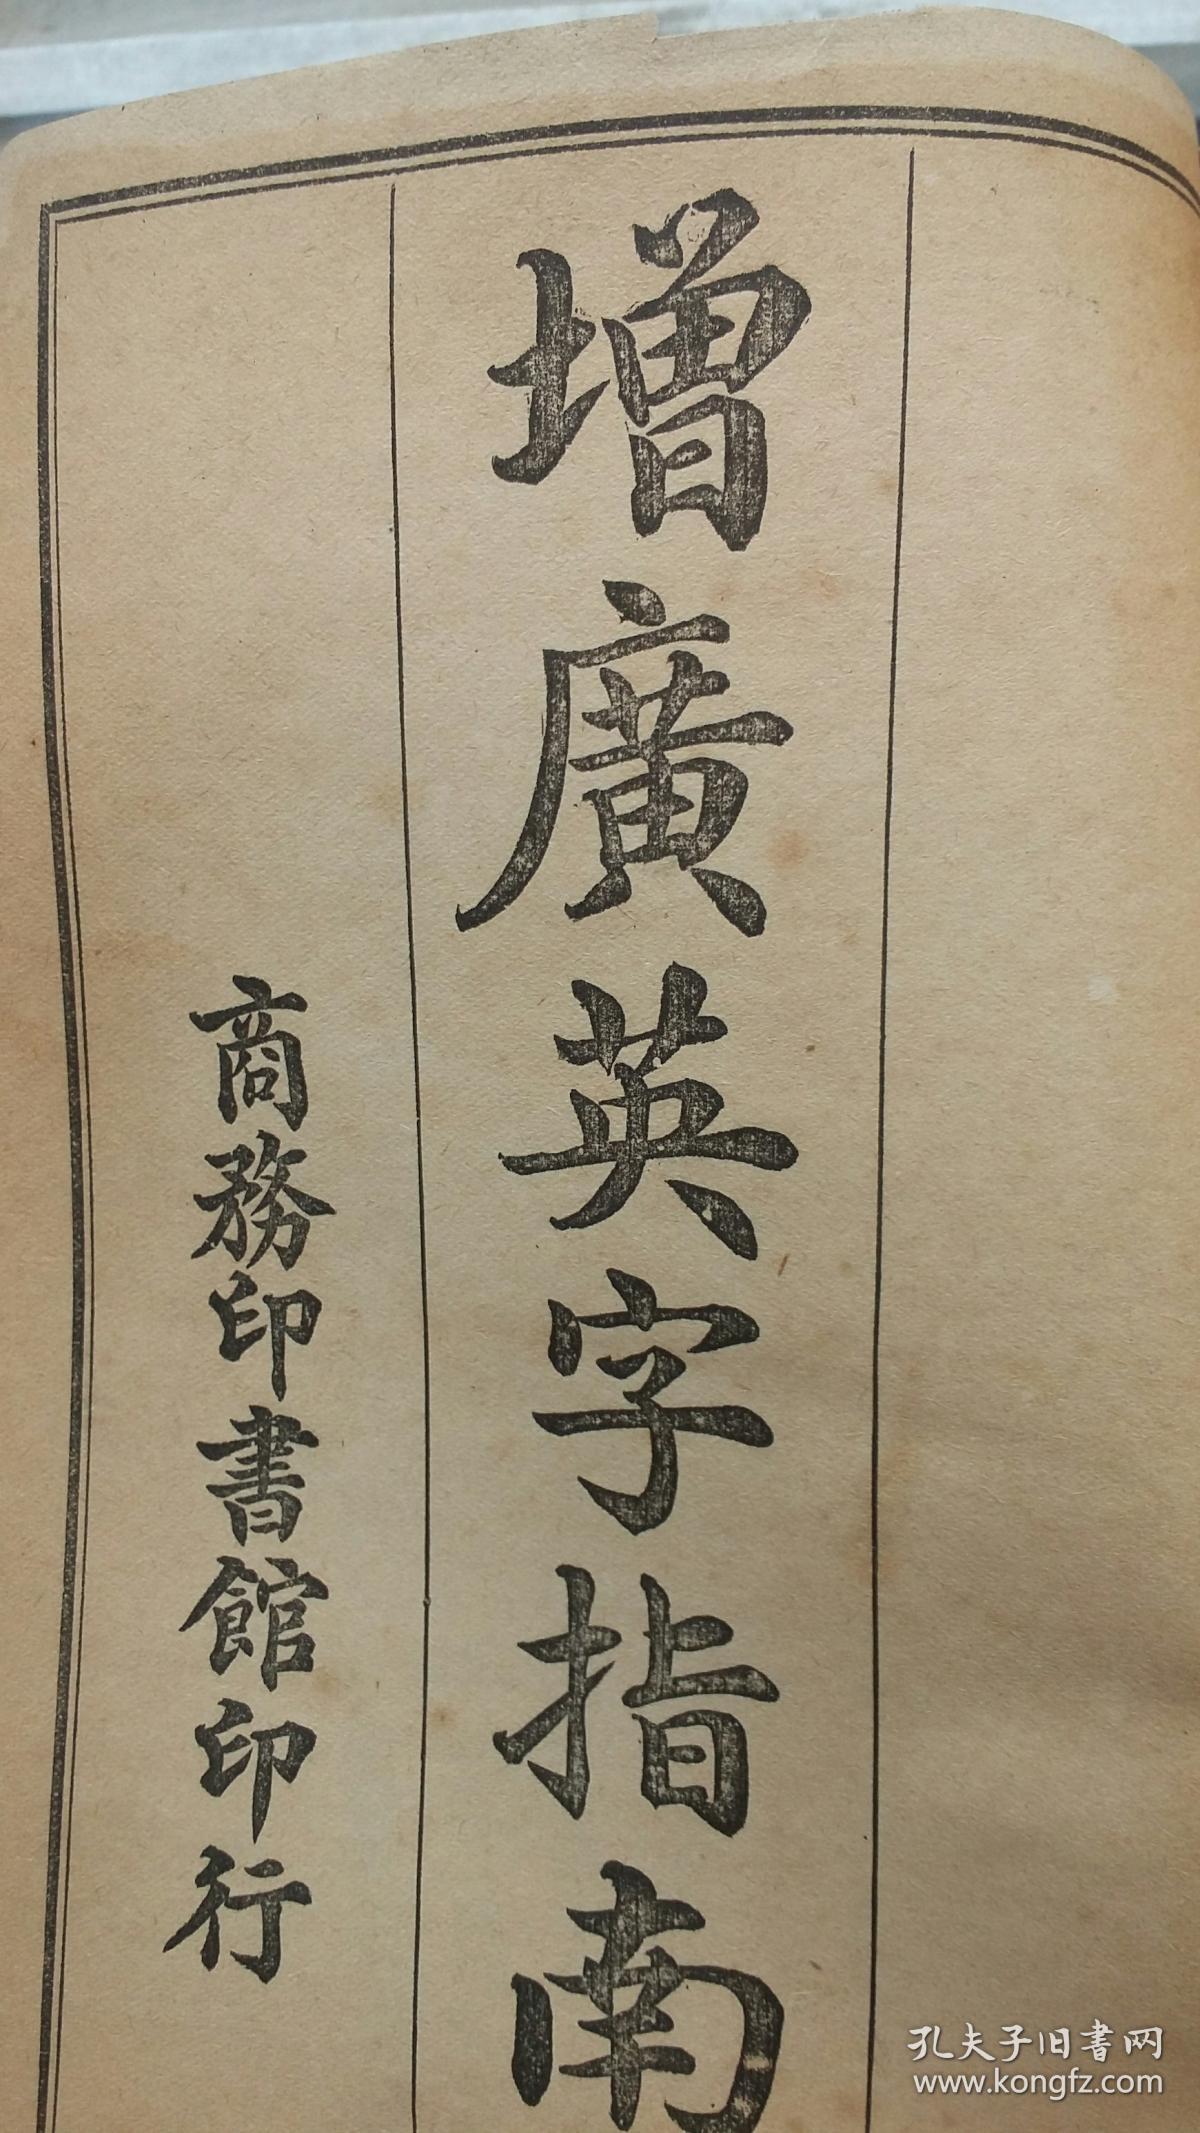 增廣英字指南
商務印書館印行
孔夫子旧書网
www.kongfz.com